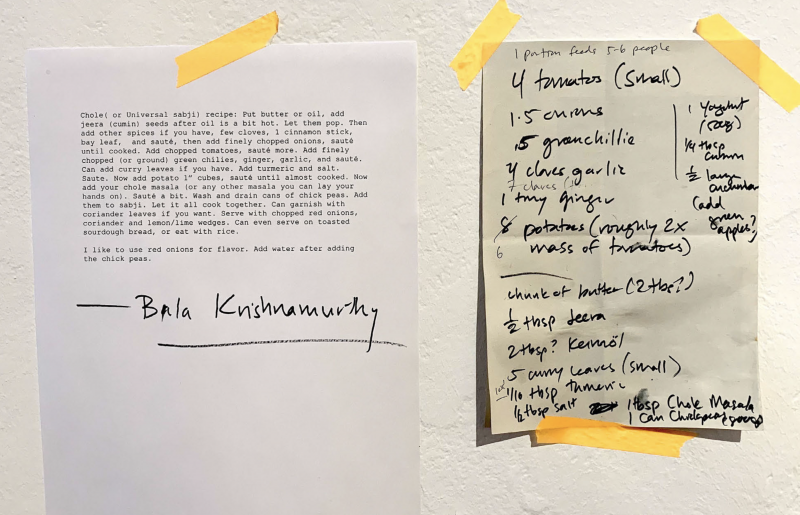 Chole( or Universal sabji) recipe: Put butter or oil, add
jeera (cumin) seeds after oil is a bit hot. Let them pop. Then
add other spices if you have, few cloves, 1 cinnamon stick,
bay leaf,  and sauté, then add finely chopped onions, sauté
until cooked. Add chopped tomatoes, sauté more. Add finely
chopped (or ground) green chilies, ginger, garlic, and sauté.
Can add curry leaves if you have. Add turmeric and salt.
Saute. Now add potato 1" cubes, sauté until almost cooked. Now
add your chole masala (or any other masala you can lay your
hands on). Sauté a bit. Wash and drain cans of chickpeas. Add
them to sabji. Let it all cook together. Can garnish with
coriander leaves if you want. Serve with chopped red onions,
coriander and lemon/lime wedges. Can even serve on toasted
sourdough bread, or eat with rice.
I like to use red onions for flavor. Add water after adding
the chick peas.
— Bala Krishnamurthy
1 portion feeds 5-6 people
4 tomatoes (small)
1.5 onions
.5 greenchillie
4 cloves garlic
7 cloves
1 tiny ginger
8 potatoes (roughly 2x
6 mass of tomatoes)
chunk of butter (2tbs?)
1/2 tbsp Jeera
2tbsp? Keimöl
5 curry leaves (small)
1/10 tbsp turmeric
1/2 tbsp salt
1tbsp Chole Masala
1 Can Chickpeas
1 Yoghurt
1/4 tbsp
cumin
1/2 large
cucumber
(add
green
apples?)